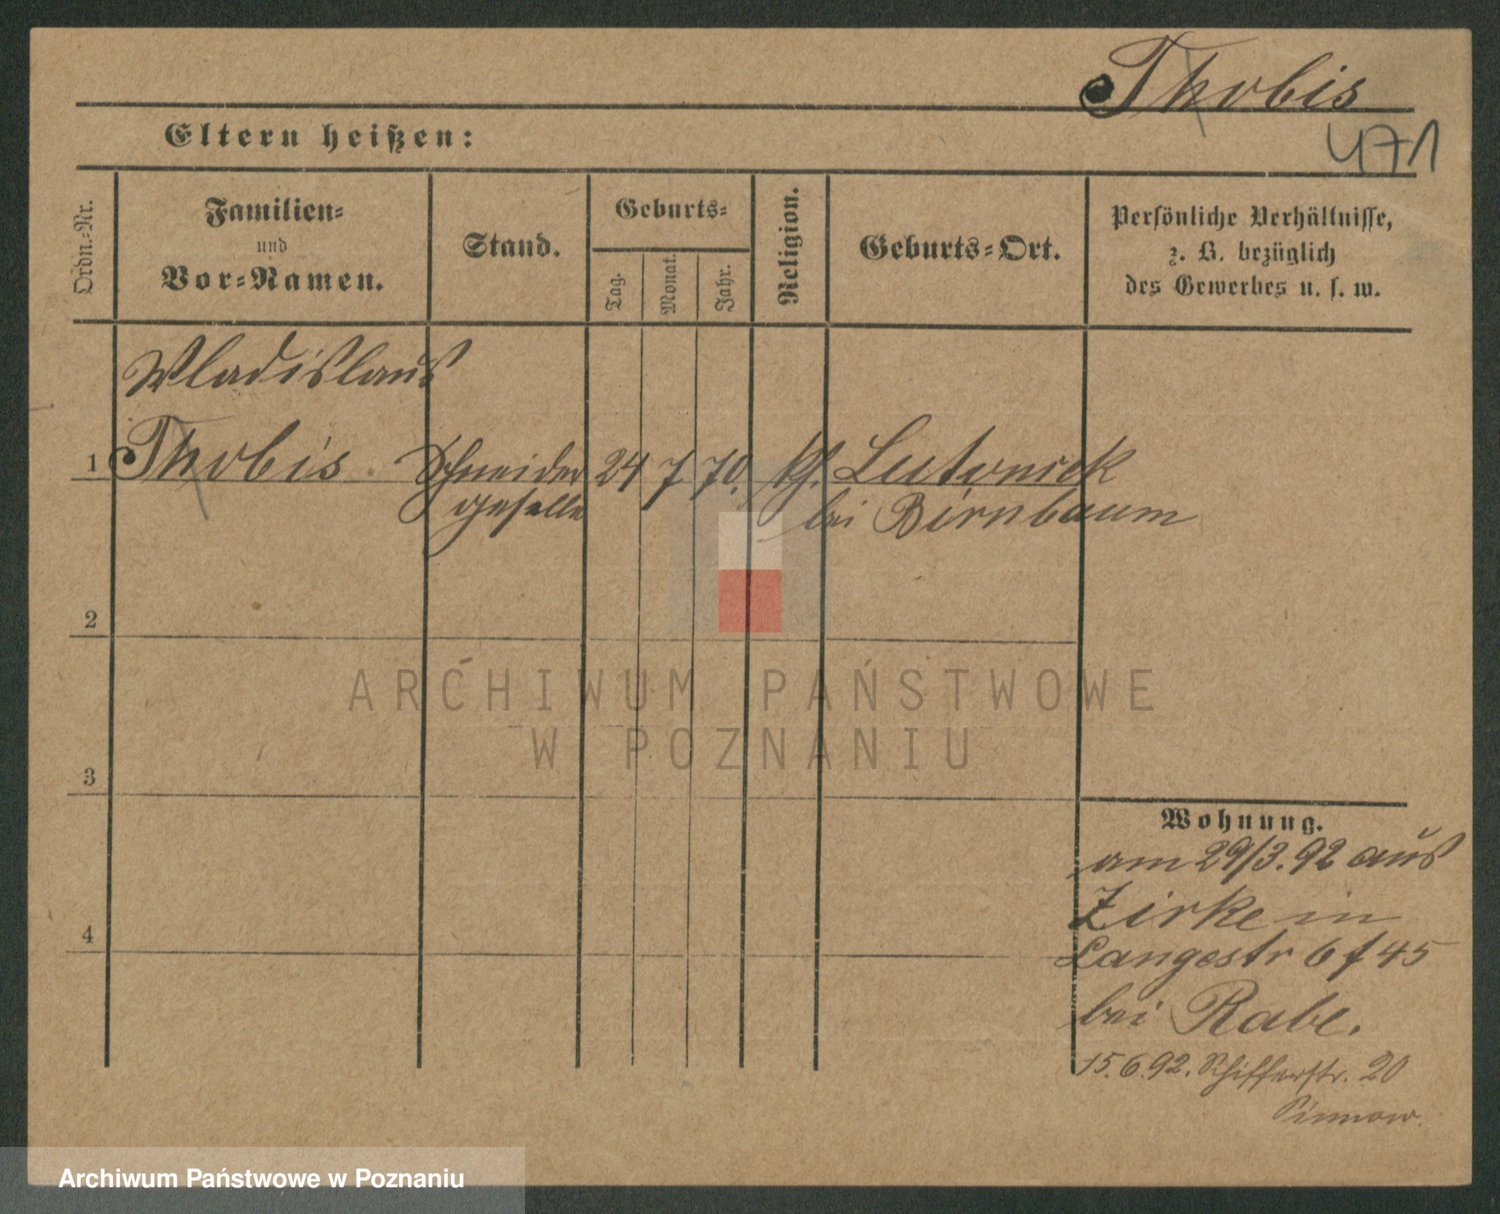 Thobis
471
Eltern heißen:
Ordn.-Nr.
Familien-
und
Vor-Namen.
Stand.
Geburts-
Tag.
Monat.
Jahr.
Religion.
Geburts-Ort.
Persönliche Verhältnisse,
z. B. bezüglich
des Gewerbes u. s. w.
Wladislaus
1 Thobis Schneider 24 7 70. kth. Lutomek
geselle bei Birnbaum
2
3
4
Wohnung.
am 29/3.92 aus
Zirke in
Langestr 6 f 45
bei Rabe.
15.6.92. Schifferstr. 20
ARCHIWUM PAŃSTWOWE
W POZNANIU
Archiwum Państwowe w Poznaniu